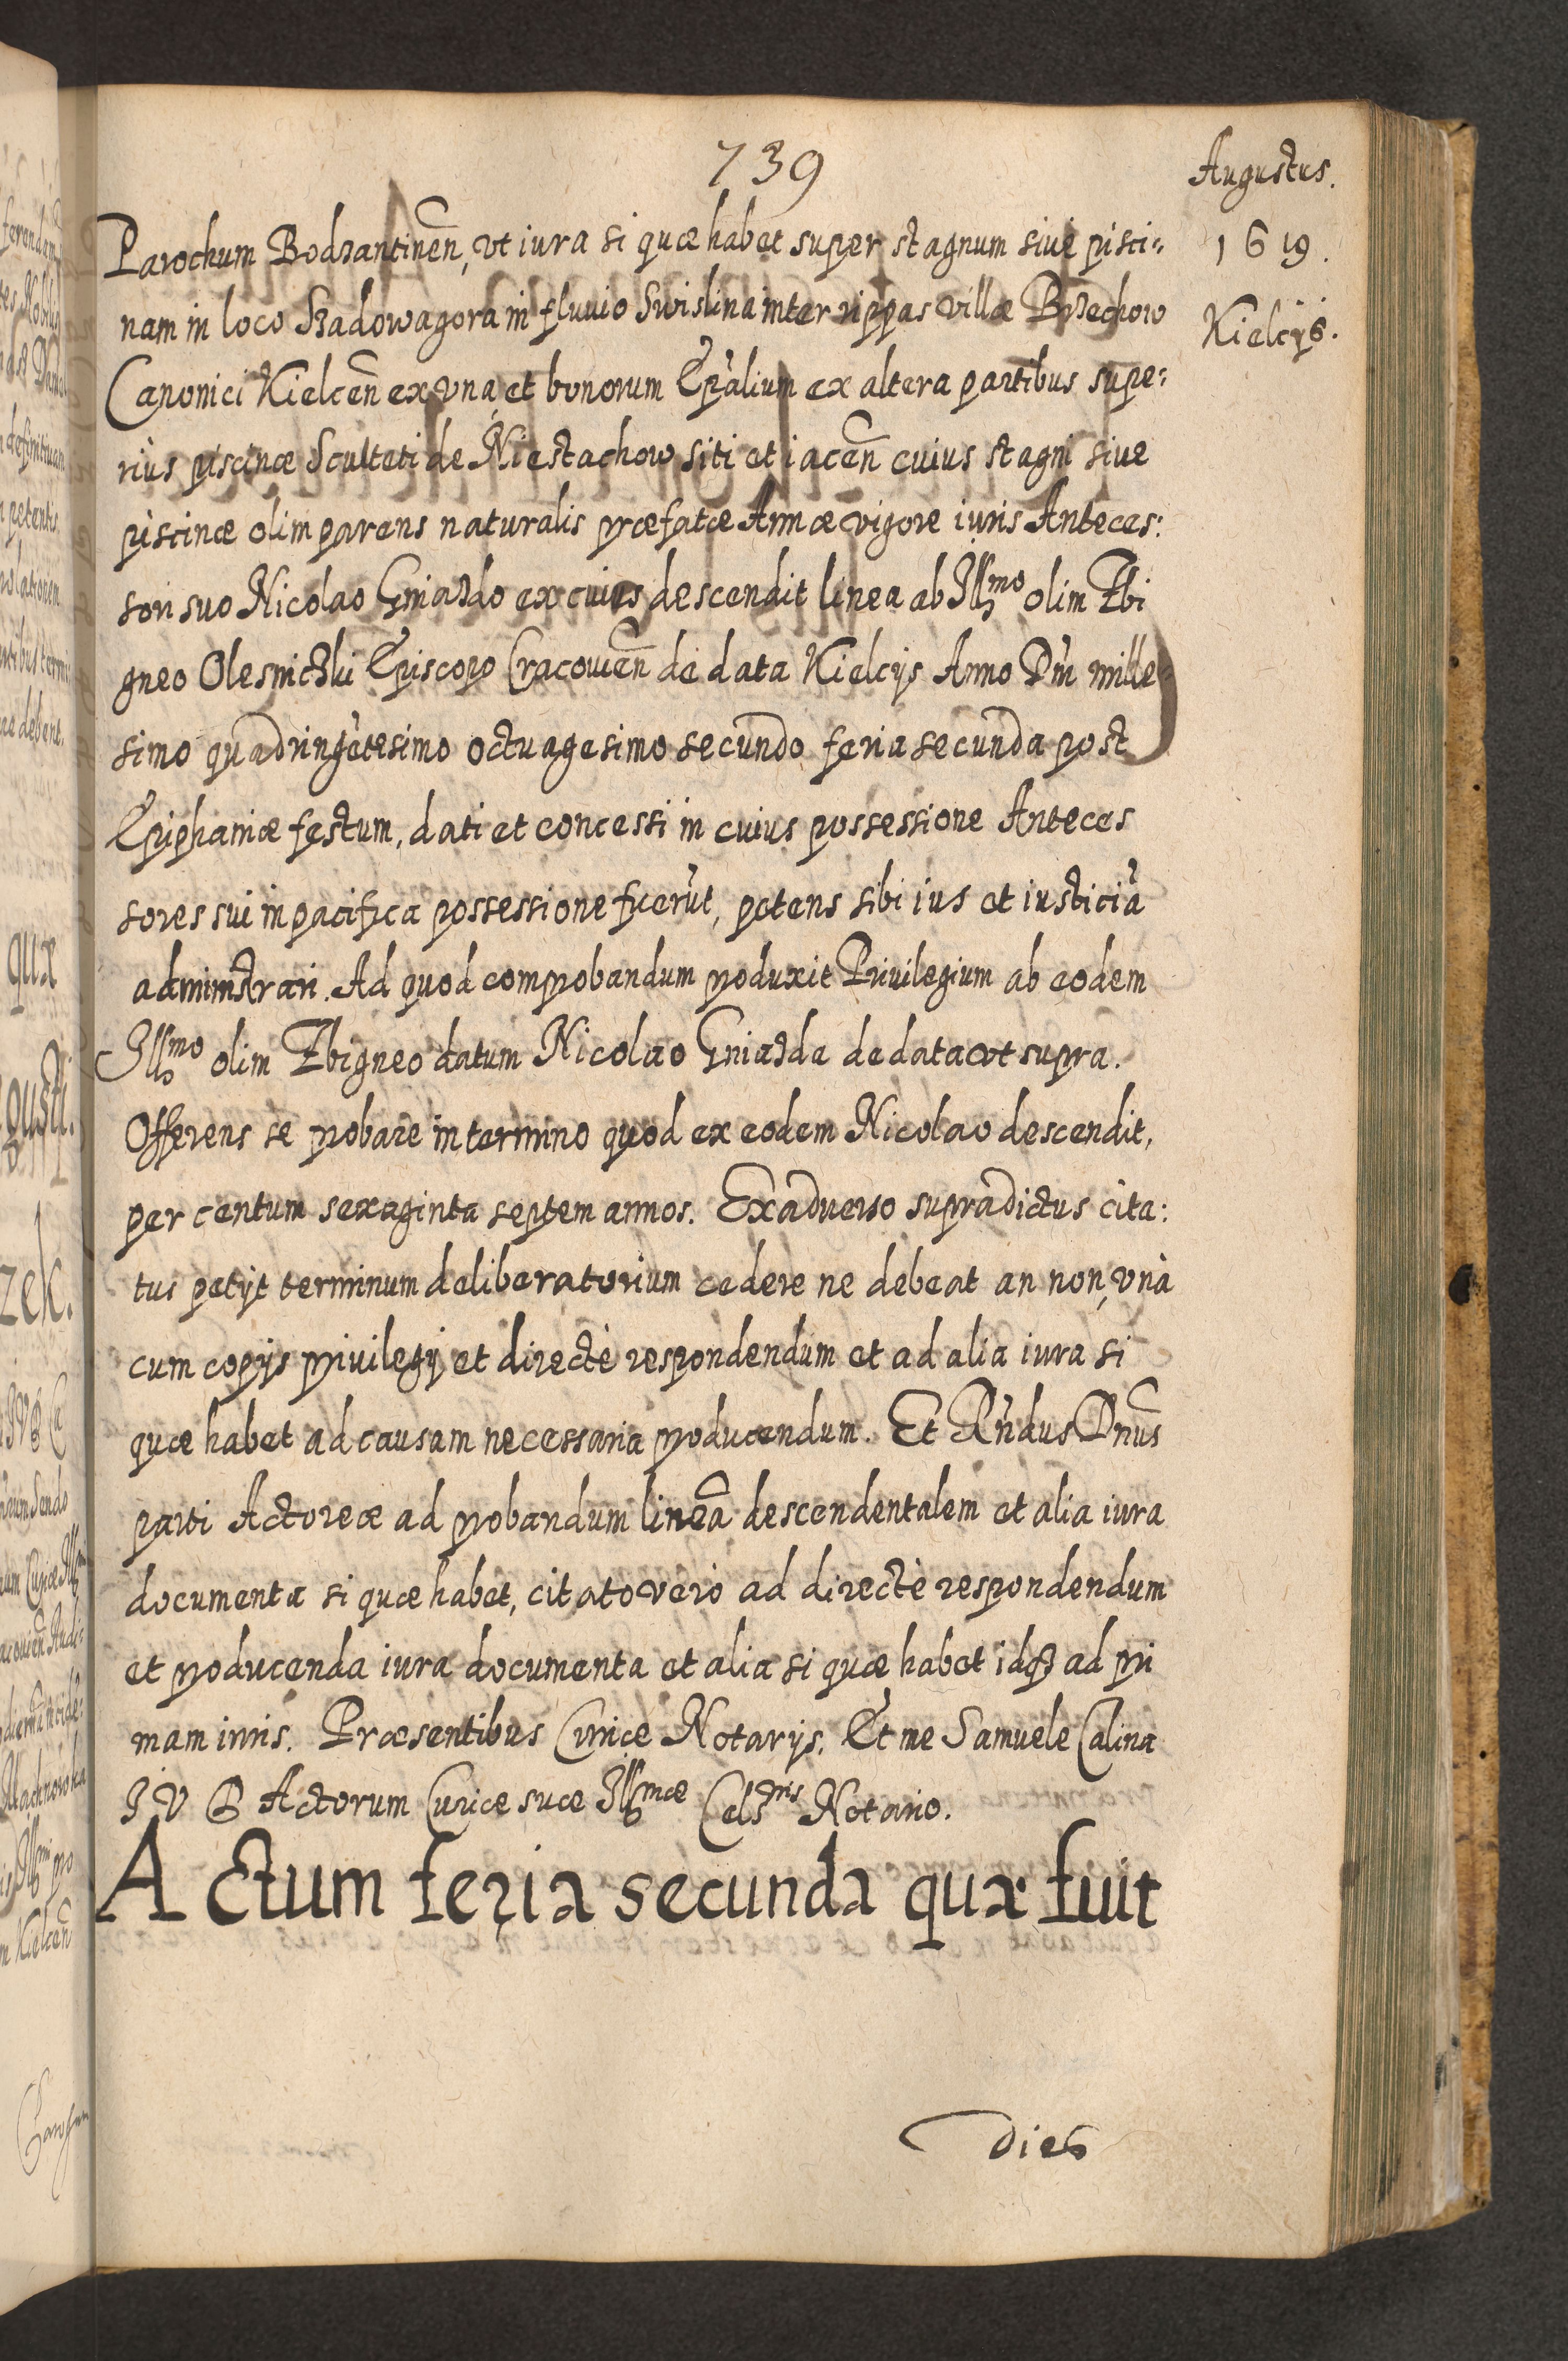 739
Augustus.
1619.
Kielcijs.
Parochum Bodzantineñ, vt iura si quæ habet super stagnum siue pisci=
nam in loco Szadowagora in fluuio Swislina inter rippas villæ Brzechow
Canonici Kielceñ ex vna, et bonorum Ep̃alium ex altera partibus supe=
rius piscinæ Sculteti de Niestachow siti et iaceñ cuius stagni siue
piscinæ olim parens naturalis præfatæ Annæ vigore iuris Anteces:
sori suo Nicolao Gniazdo ex cuius descendit linea ab Illmo olim Zbi
gneo Olesnichki Episcopo Cracouieñ de data Kielcijs Anno Dñi mille=
simo quadringẽtesimo octuagesimo secundo feria secunda post
Epiphaniæ festum, dati et concessi in cuius possessione Anteces
sores sui in pacifica possessione fuerũt, petens sibi ius et iusticiã
administrari. Ad quod comprobandum produxit Priuilegium ab eodem
Illmo olim Zbigneo datum Nicolao Gniazda de data vt supra.
Offerens se probare in termino quod ex eodem Nicolao descendit,
per centum sexaginta septem annos. Ex aduerso supradictus cita:
tus petijt terminum deliberatorium cedere ne debeat an non, vnà
cum copijs priuilegij et directè respondendum et ad alia iura si
quæ habet ad causam necessaria producendum. Et Rñdus Dnus̃
parti Actoreæ ad probandum lineã descendentalem et alia iura
documenta si quæ habet, citato verò ad directè respondendum
et producenda iura documenta et alia si quæ habet idq3 ad pri
mam iuris. Præsentibus Curiæ Notarijs. Et me Samuele Calina
I V B Actorum Curiæ suæ Illmæ Celsnis Notario.
Actum feria secunda quæ fuit
Dies